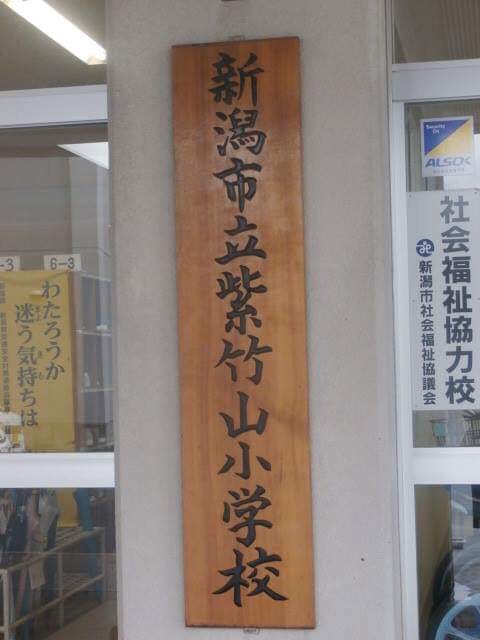 新潟市立紫竹山小学校
Security On
ALSOK
社会福祉協力校
新潟市社会福祉協議会
-3
6-3
わたろうか
迷う気持ちは